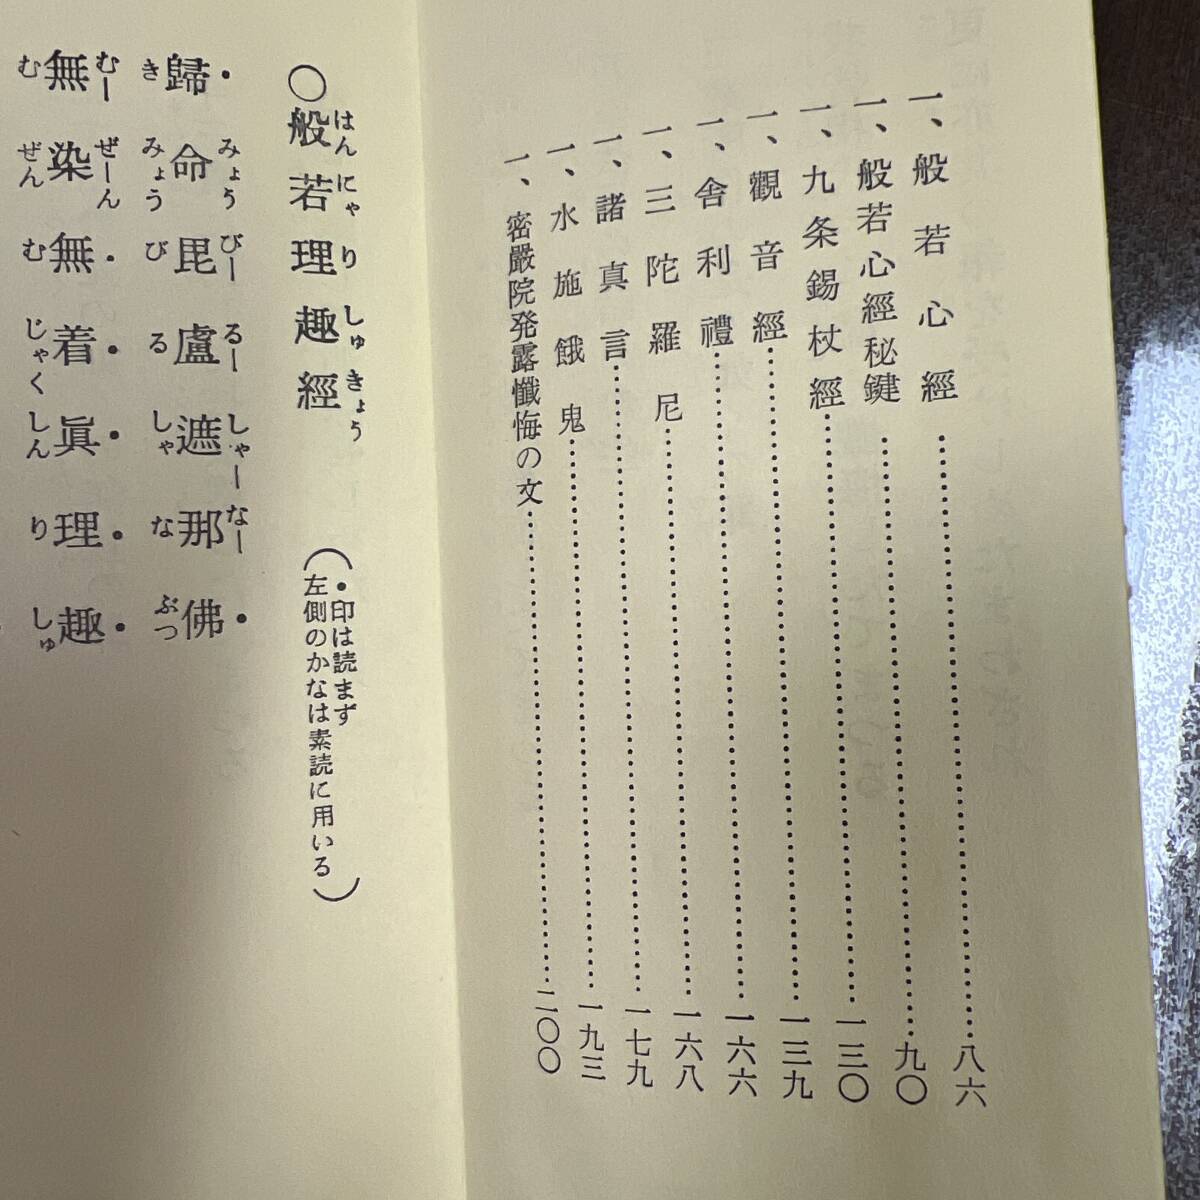 一、般若心經……八六
一、般若心經秘鍵……九〇
一、九条錫杖經……一三〇
一、觀音經……一三九
一、舎利禮……一六六
一、三陀羅尼……一六八
一、諸真言……一七九
一、水施餓鬼……一九三
一、密嚴院発露懺悔の文……二〇〇
はんにゃりしゅきょう
○般若理趣經
（・印は読まず
左側のかなは素読に用いる）
みょうびーるーしゃーなー
・歸命毘盧遮那佛・
きみょうびるしゃなぶつ
むーぜーん
無染無・着・眞・理・趣・
むぜんむじゃくしんりしゅ